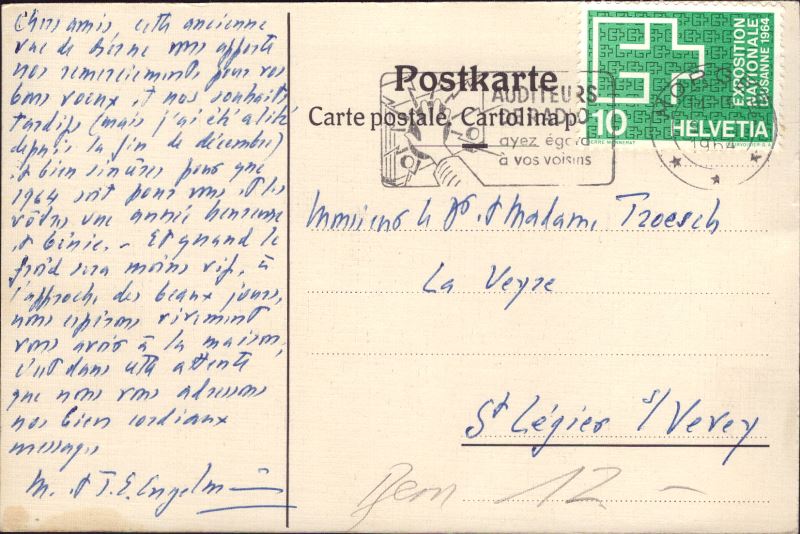 Chers amis, cette ancienne
vue de Berne vous apporte
nos remerciements pour vos
bons voeux et nos souhaits
tardifs (mais j'ai été alité
depuis la fin de décembre)
et bien sincères pour que
1964 soit pour vous et les
vôtres une année heureuse
et bénie. - Et quand le
froid sera moins vif, à
l'approche des beaux jours,
nous espérons vivement
vous avoir à la maison,
c'est dans cette attente
que nous vous adressons
nos bien cordiaux
messages
M. et T. E. Engelmann
Postkarte
Carte postale, Cartolina p
AUDITEURS
RADIO
ayez égard
à vos voisins
1964
EXPOSITION
NATIONALE
LAUSANNE 1964
10 HELVETIA
PIERRE MONNERAT
Monsieur le Dr et Madame Troesch
La Veyre
St Légier s/Vevey
Bern 12 -